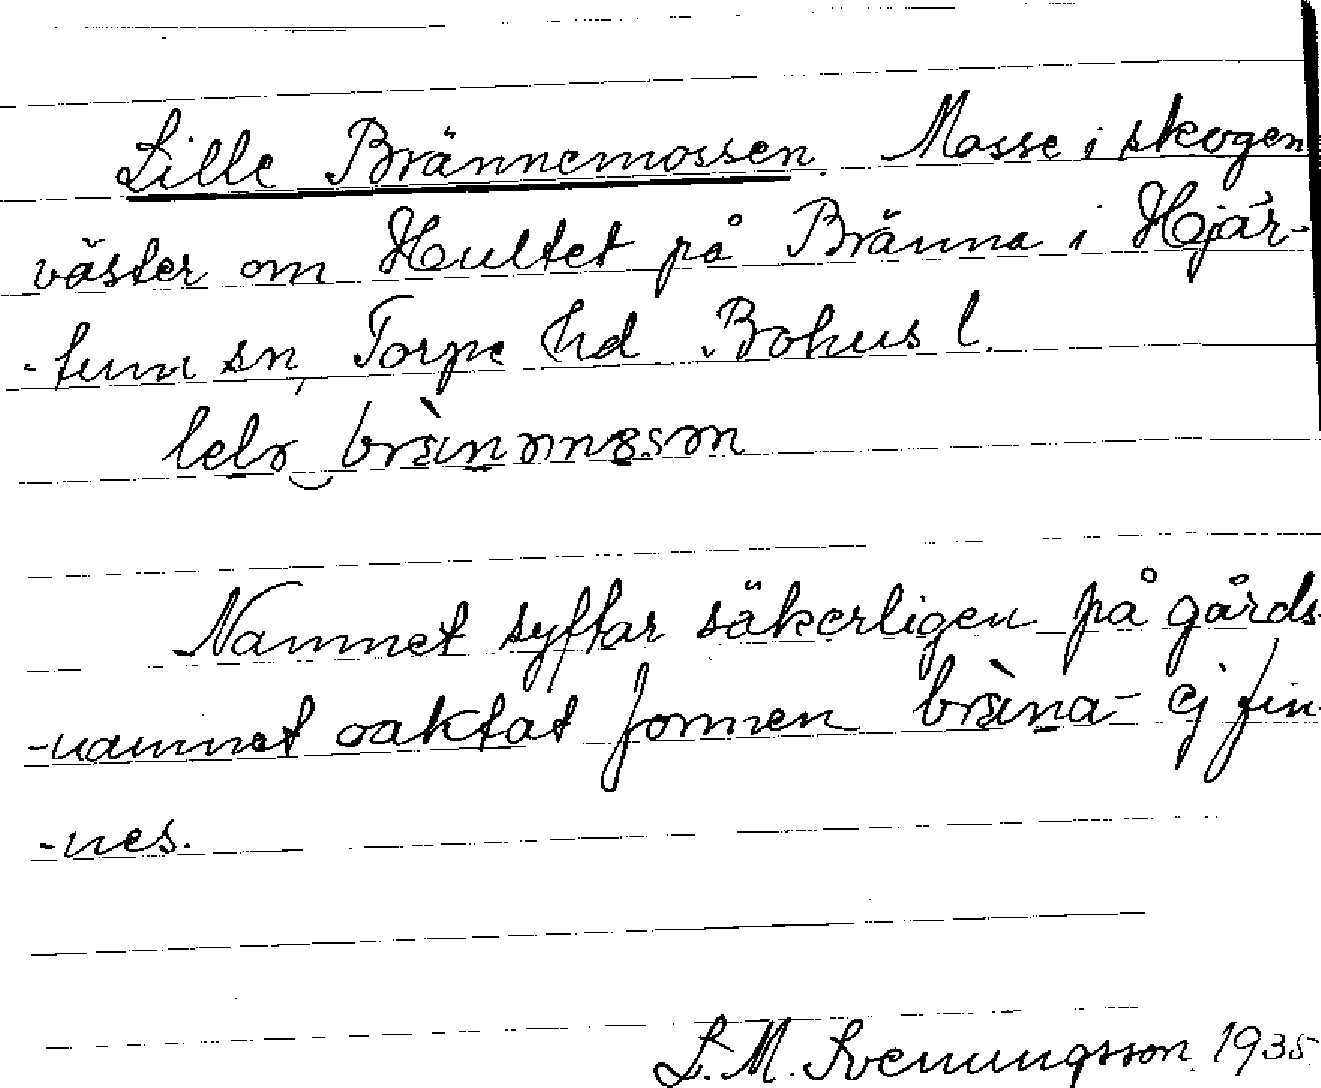 Lille Brännemossen. Mosse i skogen
väster om Hultet på Bränna i Hjär-
-tum sn, Torpe hd. Bohus l.
Namnet syftar säkerligen på gårds
-namnet oaktat formen bràna- ej fin
-nes.
S. M. Svenungsson 1935